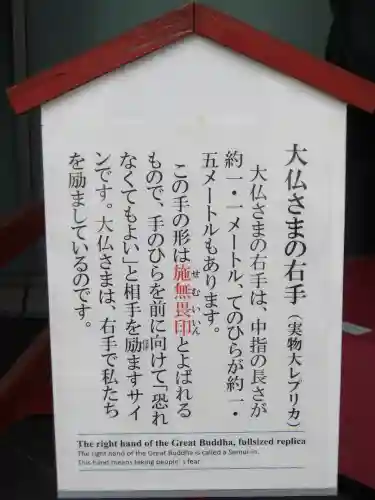 大仏さまの右手（実物大レプリカ）
大仏さまの右手は、中指の長さが
約一・一メートル、てのひらが約一・
五メートルもあります。
この手の形は施無畏印とよばれる
せむいいん
もので、手のひらを前に向けて「恐れ
なくてもよい」と相手を励ますサイ
ンです。大仏さまは、右手で私たち
を励ましているのです。
The right hand of the Great Buddha, fullsized replica
The right hand of the Great Buddha is called a Semui-in.
This hand means taking people's fear